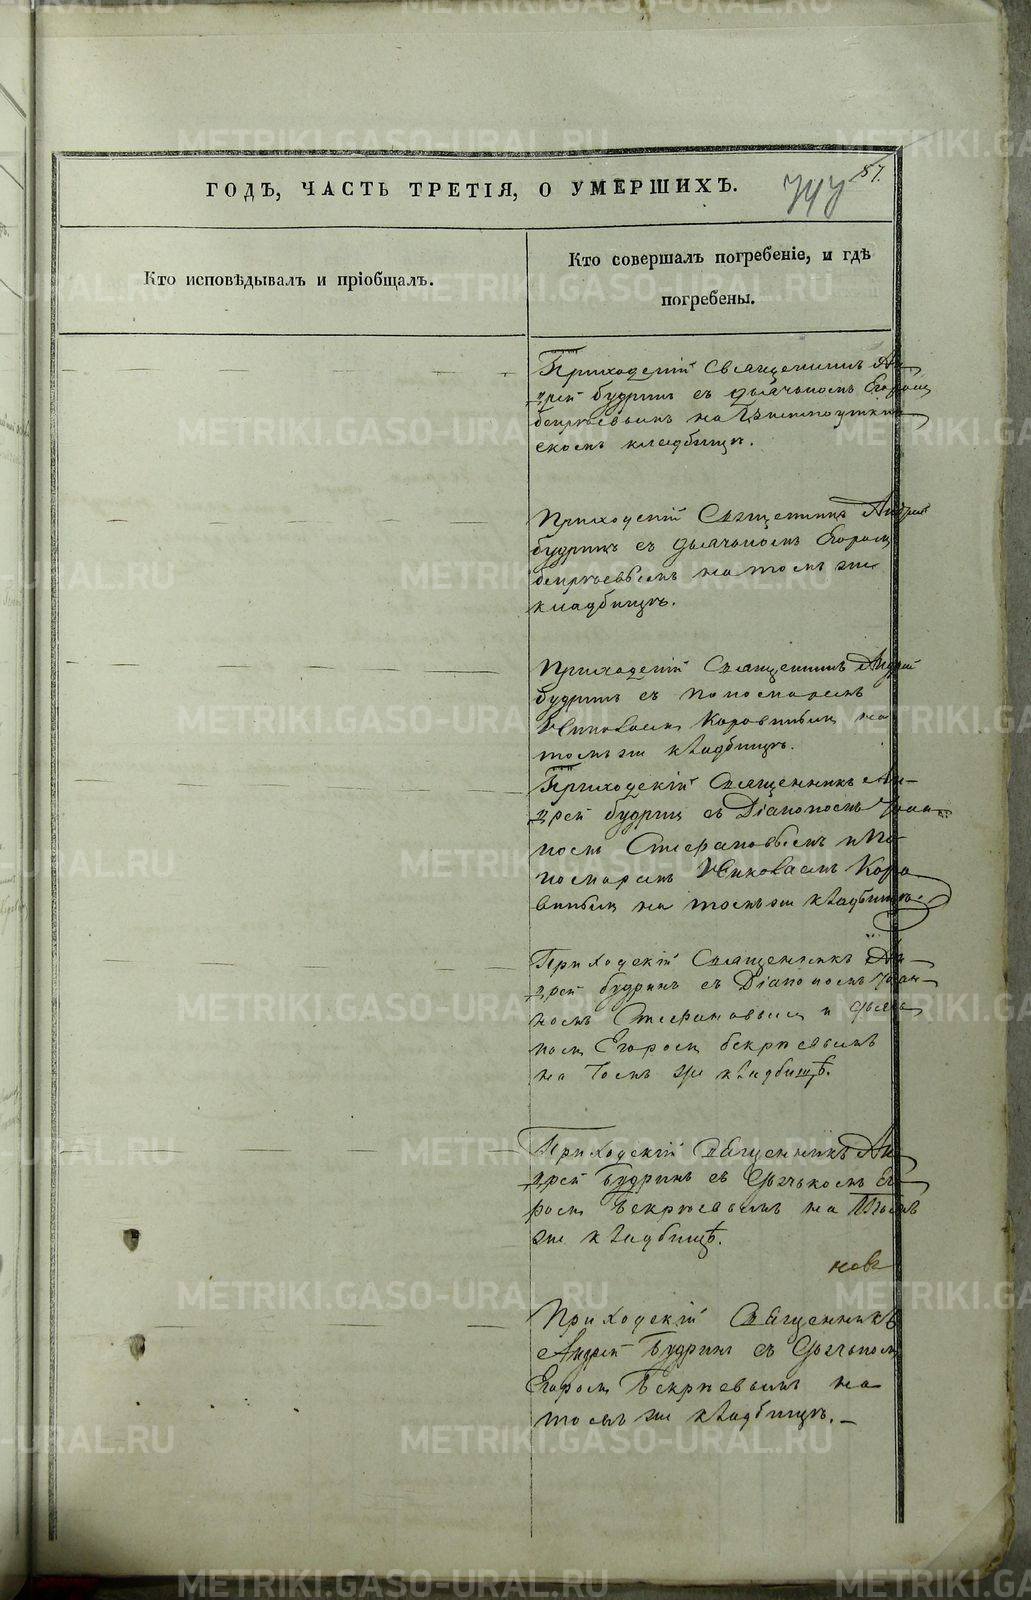 ГОДѢ, ЧАСТЬ ТРЕТІЯ, О УМЕРШИХЪ.
87.
Кто исповѣдывалъ и пріобщалъ.
Кто совершалъ погребеніе, и гдѣ
погребены.
Приходскій Священникъ Ан-
дрей Будринъ съ дьячькомъ Егоромъ
на
скомъ кладбищѣ.
Приходскій Священникъ Андрей
Будринъ съ дьячькомъ Егоромъ
на томъ же
кладбищѣ.
Приходскій Священникъ Андрей
Будринъ съ пономаремъ
Николаемъ Коровинымъ на
томъ же кладбищѣ.
Приходскій Священникъ Ан-
дрей Будринъ съ Діакономъ Іоан-
номъ Стефановымъ и по
номаремъ Николаемъ Коро
винымъ на томъ же кладбищѣ.
Приходскій Священникъ Ан-
дрей Будринъ съ Діакономъ Іоан-
номъ Стефановымъ и дьячь
комъ Егоромъ Бекрѣевымъ
на томъ же кладбищѣ.
Приходскій Священникъ Ан-
дрей Будринъ съ дьячькомъ Его
ромъ Бекрѣевымъ на томъ
же кладбищѣ.
Приходскій Священникъ
Андрей Будринъ съ дьячькомъ
Егоромъ Бекрѣевымъ на
томъ же кладбищѣ.
METRIKI.GASO-URAL.RU